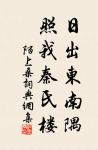 日出東南隅
照我秦氏樓
陌上桑詞典網集